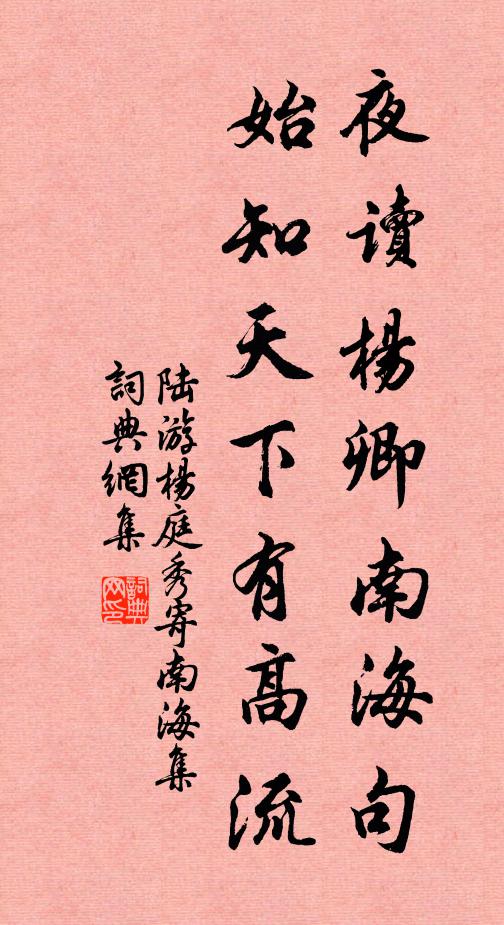 夜讀楊卿南海句
始知天下有高流
陆游楊庭秀寄南海集
詞典網集
詞典网印